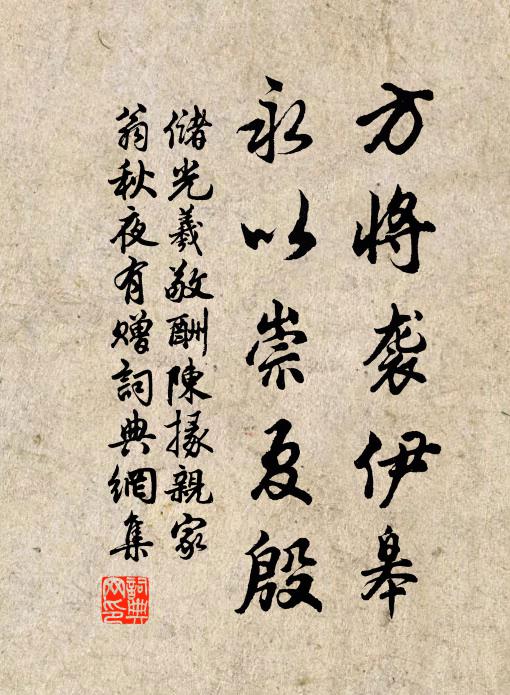 方将袭伊皋
永以崇夏殷
储光羲敬酬陳掾親家
翁秋夜有赠詞典網集
詞典网印